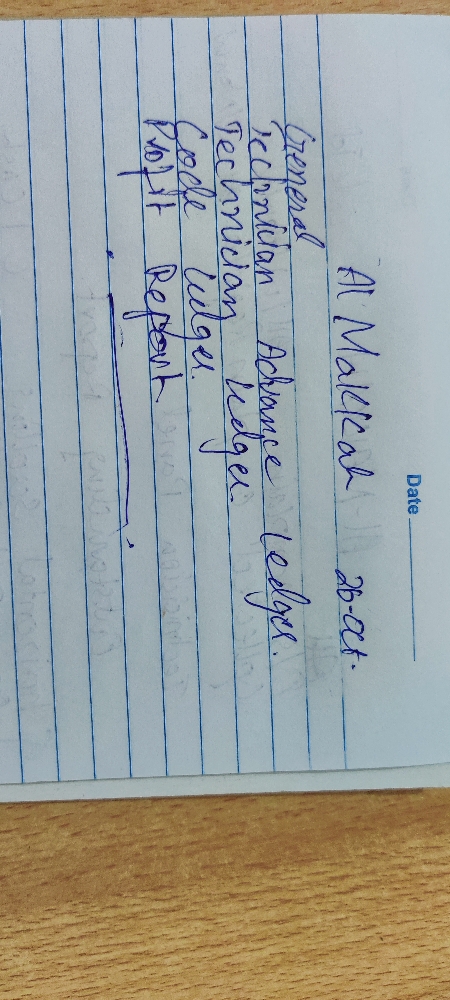 Date
Al Makkah 26-oct.
General
Technician Advance Ledger.
Technician Ledger.
Code Ledger.
Profit Report